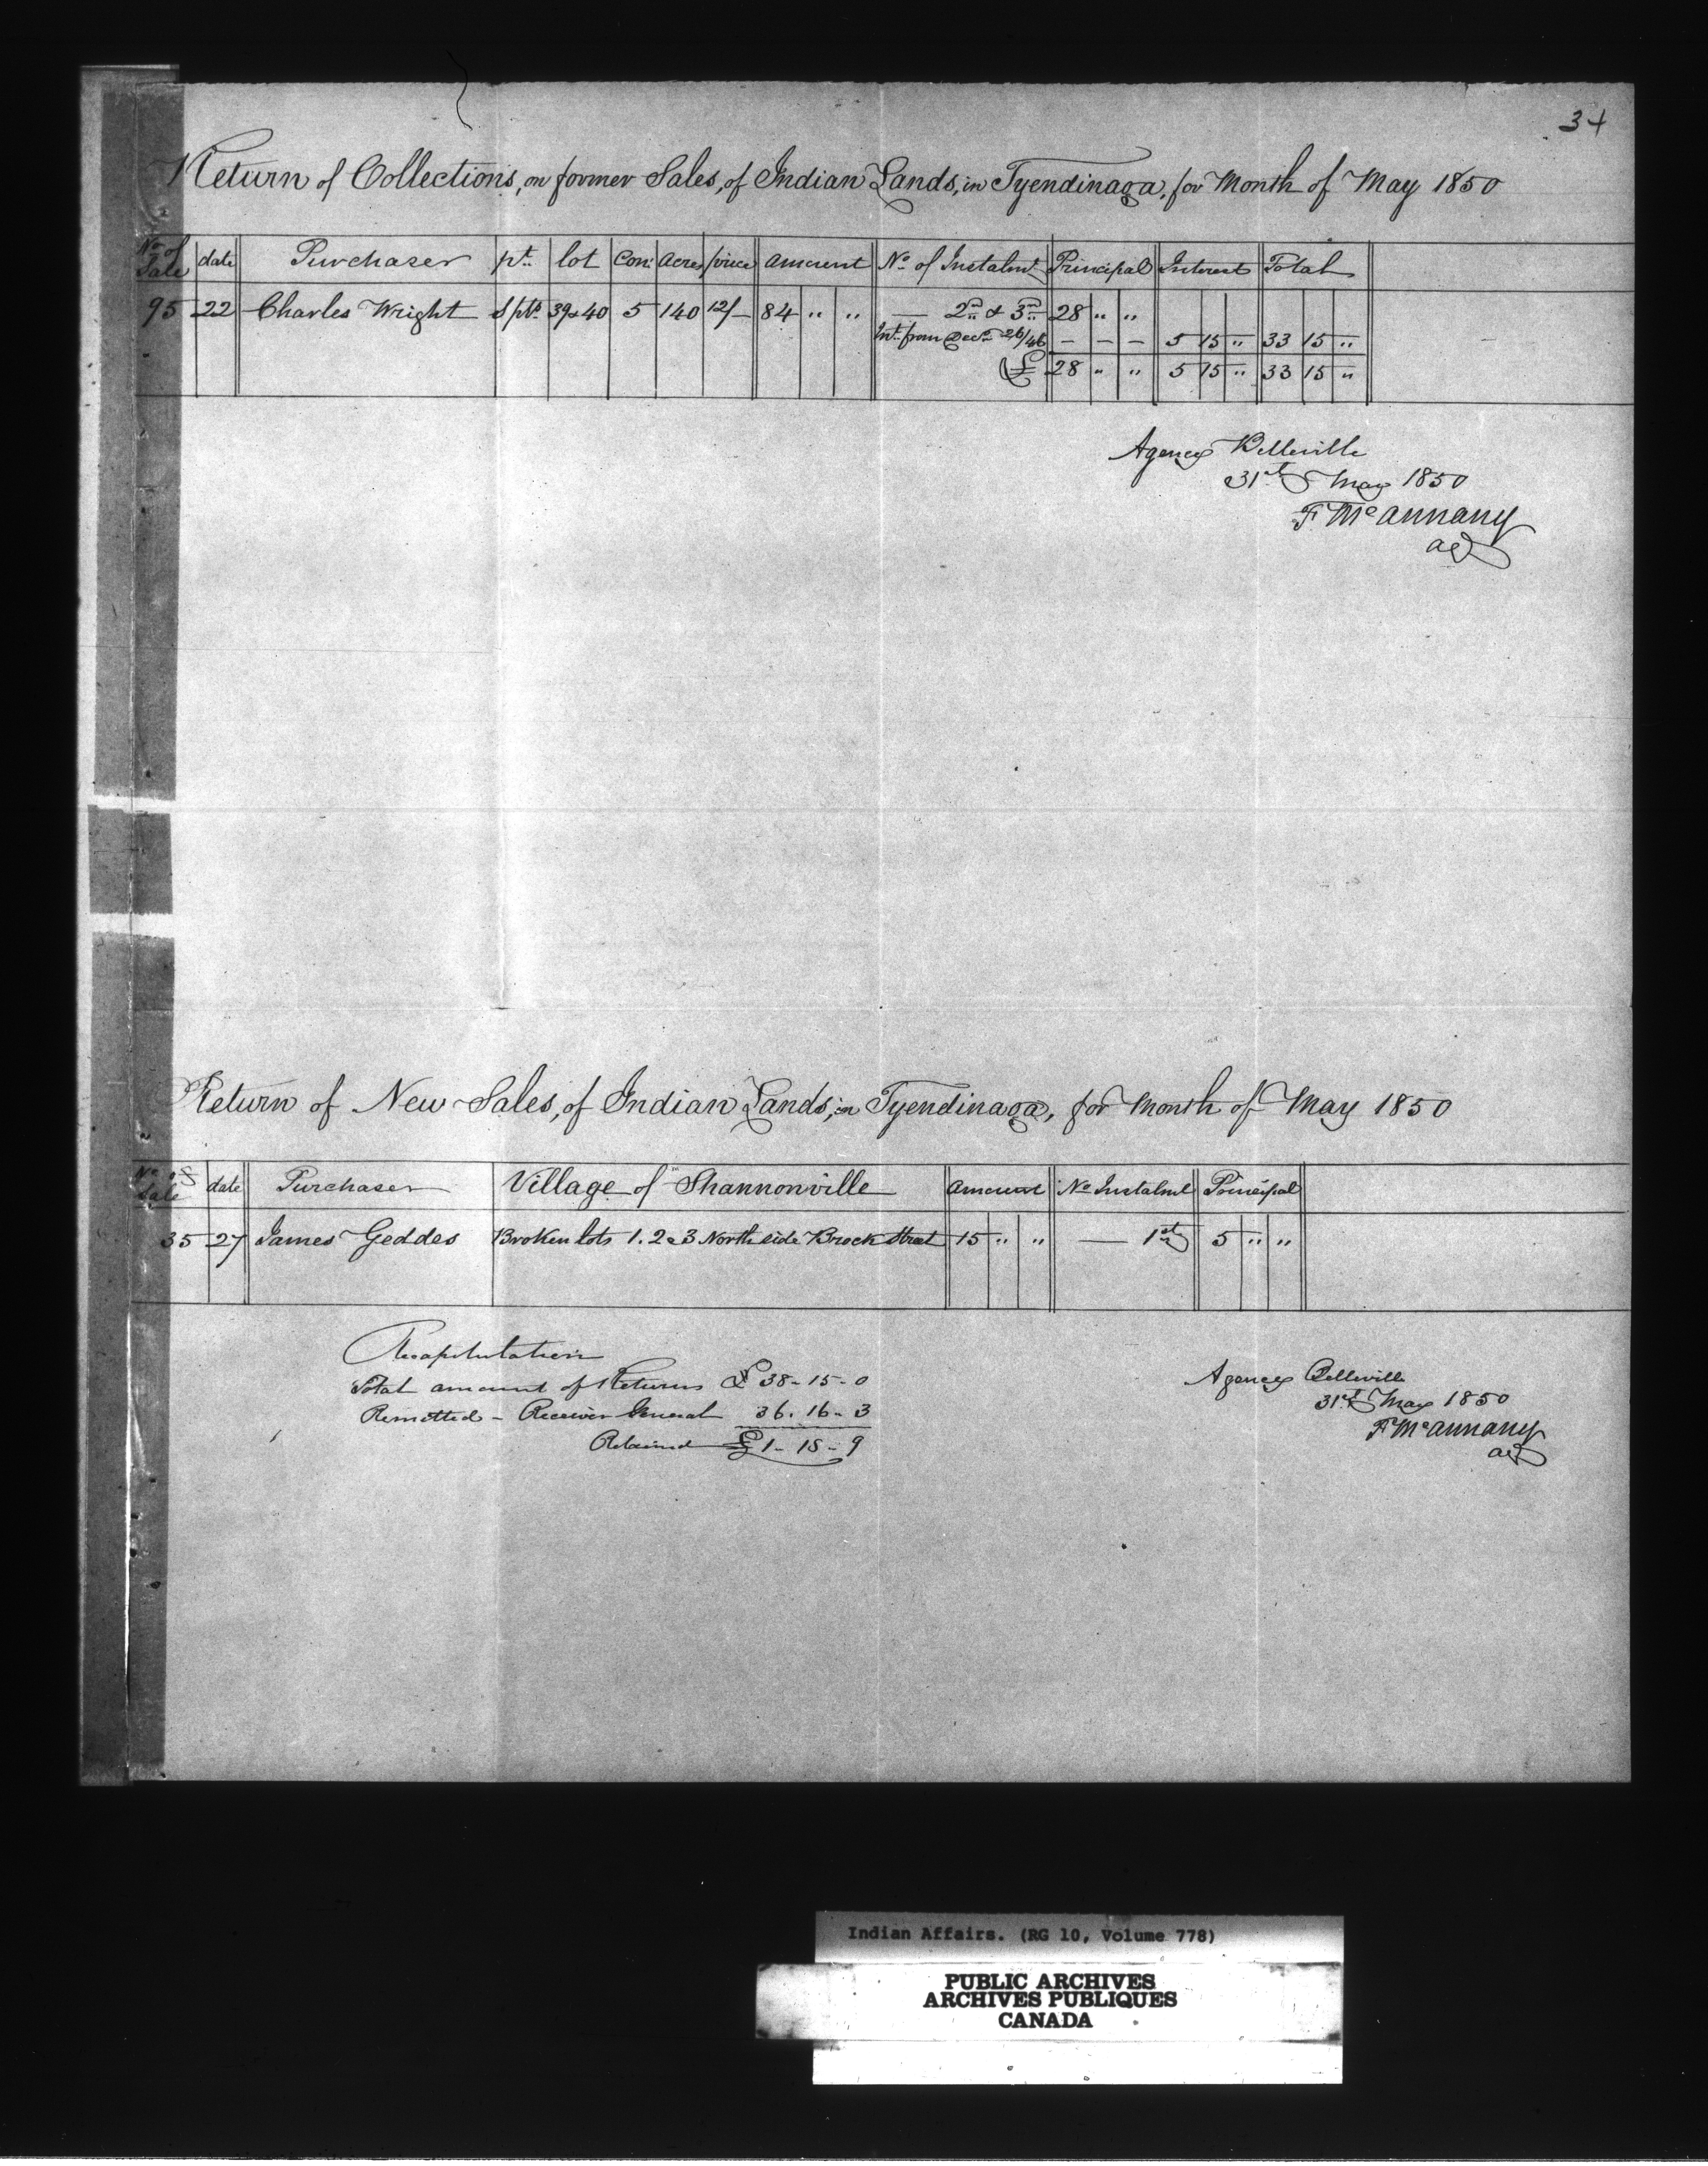 34
Return of Collections, on former Sales, of Indian Lands, in Tyendinaga, for Month of May 1850
No of Sale date Purchaser pt. lot Con: Acres price Amount No of Instalmt Principal Interest Total
95 22 Charles Wright S pts 39 & 40 5 140 12/- 84 " " — 2nd & 3rd 28 " "
Int. from Decr 26/46 — — — 5 15 " 33 15 "
£ 28 " " 5 15 " 33 15 "
Agency Belleville
31st May 1850
F McAnnany
agt
Return of New Sales, of Indian Lands, in Tyendinaga, for Month of May 1850
No of Sale date Purchaser Village of Shannonville Amount No Instalmt Principal
35 27 James Geddes Broken lots 1. 2 & 3 North side Brock Street 15 " " — 1st 5 " "
Recapitulation
Total amount of Returns £ 38-15-0
Remitted - Receiver General 36. 16-3
Retained £1-18-9
Agency Belleville
31st May 1850
F McAnnany
agt
Indian Affairs. (RG 10, Volume 778)
PUBLIC ARCHIVES
ARCHIVES PUBLIQUES
CANADA